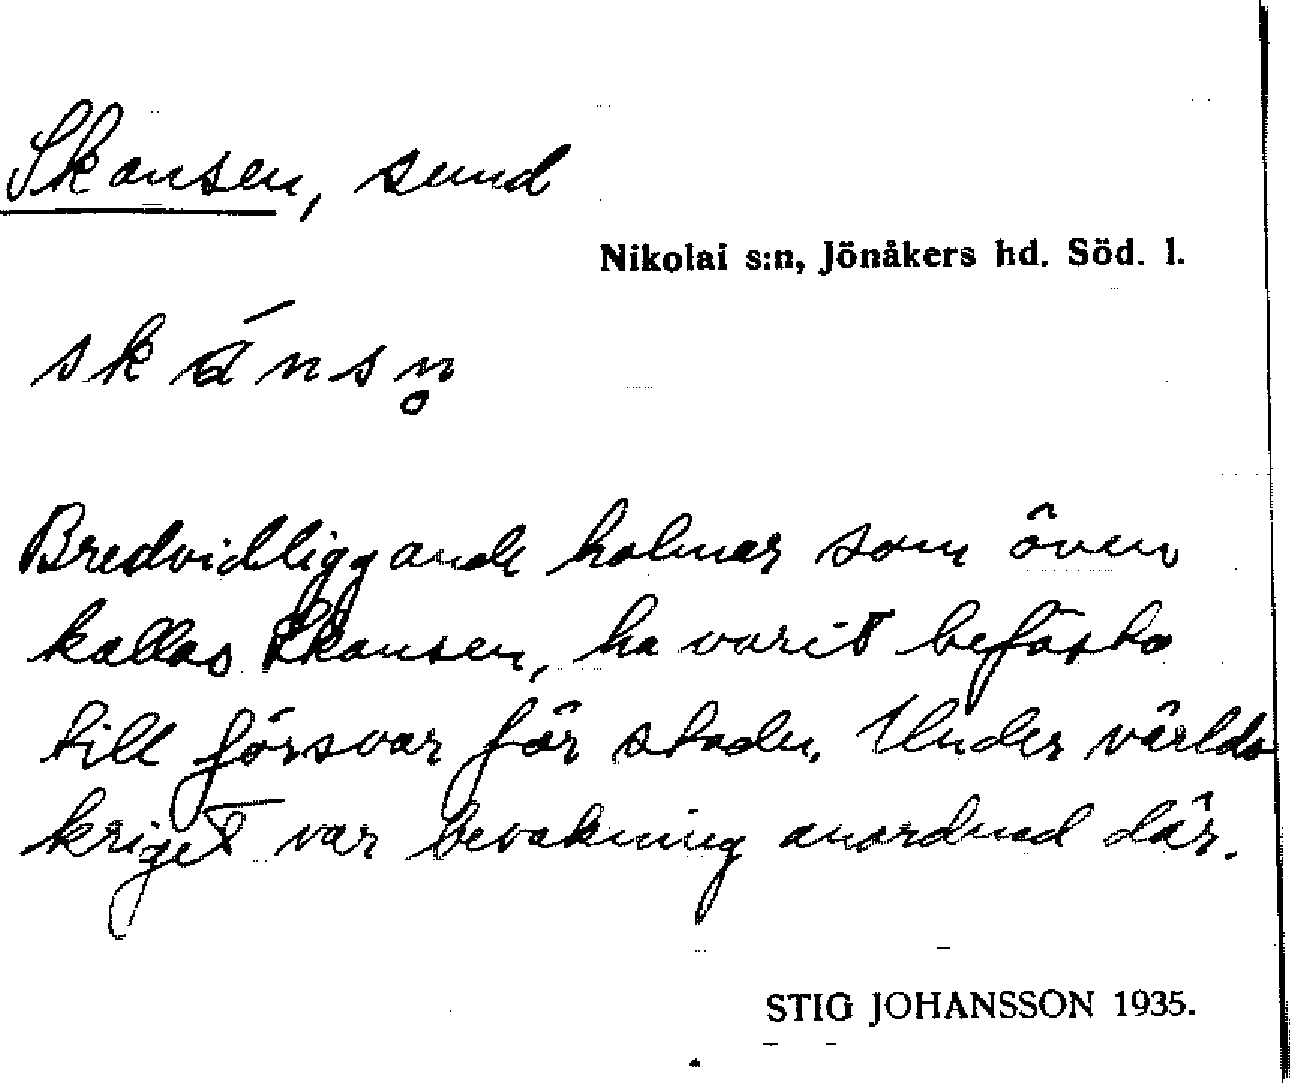 Skansen, sund
Nikolai s:n, Jönåkers hd. Söd. l.
skánsn̥
Bredvidliggande holmar som även
kallas Skansen, ha varit befästa
till försvar för staden. Under världs
kriget var bevakning anordnad där.
STIG JOHANSSON 1935.